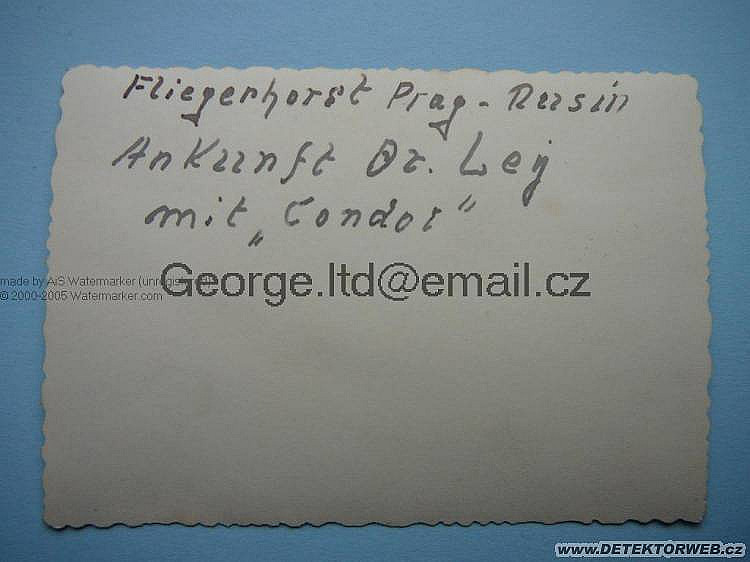 Fliegerhorst Prag - Rusin
Ankunft Dr. Ley
mit „Condor“
made by AiS Watermarker (unregistered)
© 2000-2005 Watermarker.com
George.ltd@email.cz
www.DETEKTORWEB.cz